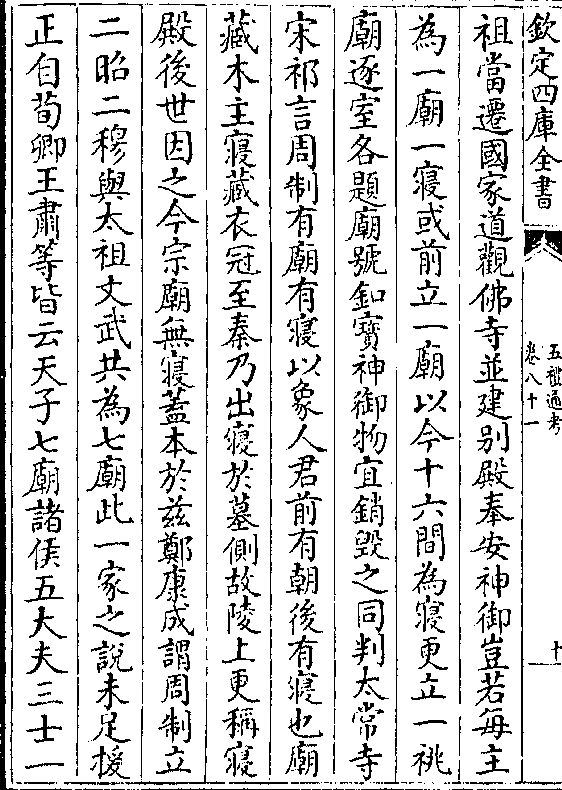 欽定四庫全書
五禮通考
卷八十一
十
祖當遷國家道觀佛寺並建别殿奉安神御豈若每主
為一廟一寢或前立一廟以今十六間為寢更立一祧
廟逐室各題廟號釦寶神御物宜銷毁之同判太常寺
宋祁言周制有廟有寢以象人君前有朝後有寢也廟
藏木主寢藏衣冠至秦乃出寢於墓側故陵上更稱寢
殿後世因之今宗廟無寢蓋本於兹鄭康成謂周制立
二昭二穆與太祖文武共為七廟此一家之說未足援
正自荀卿王肅等皆云天子七廟諸侯五大夫三士一